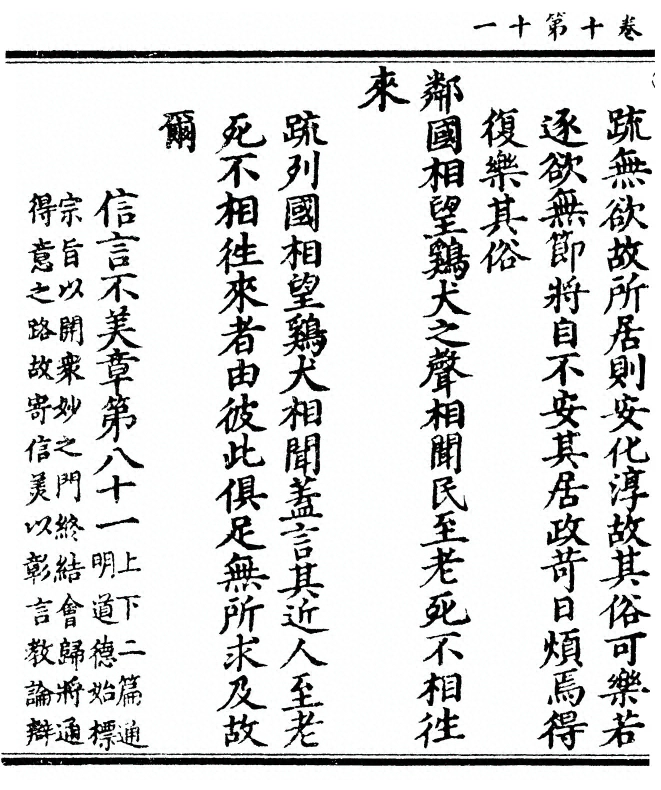 卷十第十一
疏無欲故所居則安化淳故其俗可樂若
逐欲無節將自不安其居政苛日煩焉得
復樂其俗
鄰國相望鷄犬之聲相聞民至老死不相往
來
疏列國相望鷄犬相聞蓋言其近人至老
死不相往來者由彼此俱足無所求及故
爾
信言不美章第八十一
上下二篇通
明道德始標
宗旨以開衆妙之門終結會歸將通
得意之路故寄信美以彰言教論辯